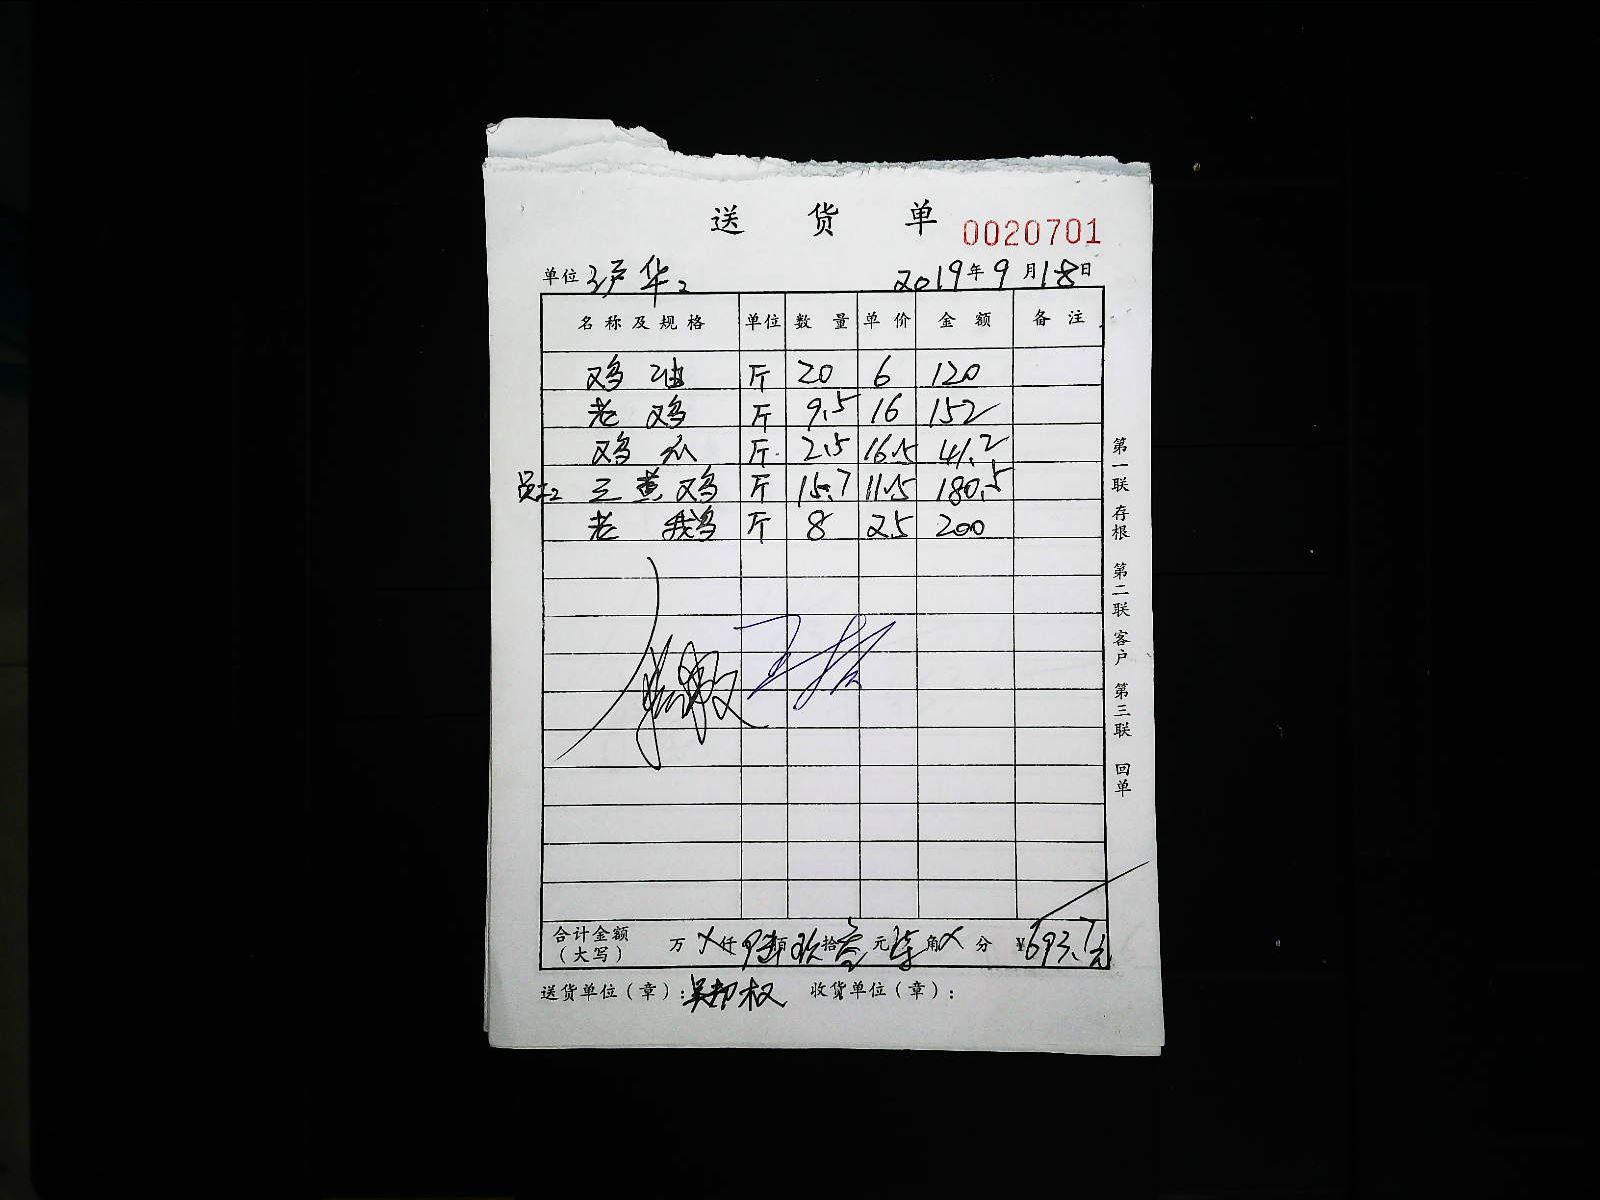 送货单 0020701
单位 沪华2 2019年9月18日
名称及规格 单位 数量 单价 金额 备注
鸡油 斤 20 6 120
老鸡 斤 9.5 16 152
鸡爪 斤 2.5 16.5 41.2
员工 三黄鸡 斤 15.7 11.5 180.5
老鹅 斤 8 25 200
合计金额(大写) 万 X仟 陆百 玖拾 叁元 柒角 X分 ¥693.7元
送货单位(章): 吴邦权 收货单位(章):
第一联 存根 第二联 客户 第三联 回单